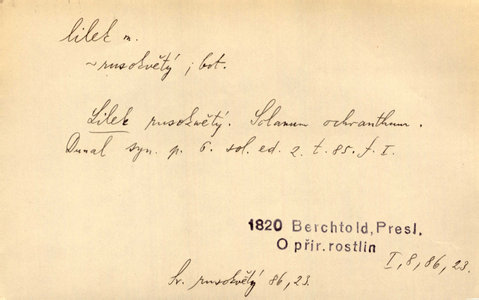 lilek m.
~ rusokvětý ; bot.
Lilek rusokvětý. Solanum ochranthum.
Dunal syn. p. 6. sol. ed. 2. t. 85. f. I.
1820 Berchtold, Presl,
O přir. rostlin
I, 8, 86, 23.
rusokvětý 86, 23.